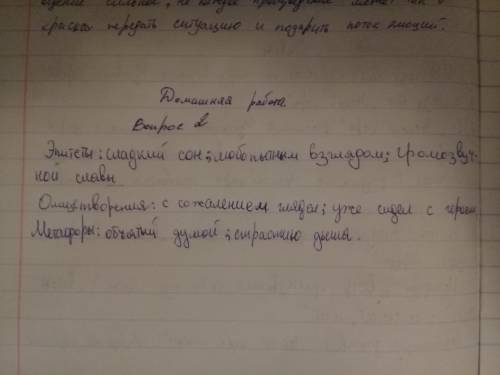 сильной, не каждый прозаический может так о
красках передать ситуацию и подарить поток эмоций.
Домашняя работа.
Вопрос 2
Эпитеты: сладкий сон; любопытным взглядом; громозвуч-
ной славы
Олицетворения: с сожалением глядел; уже сидел с героем
Метафоры: объятый думой; страстию дыша.